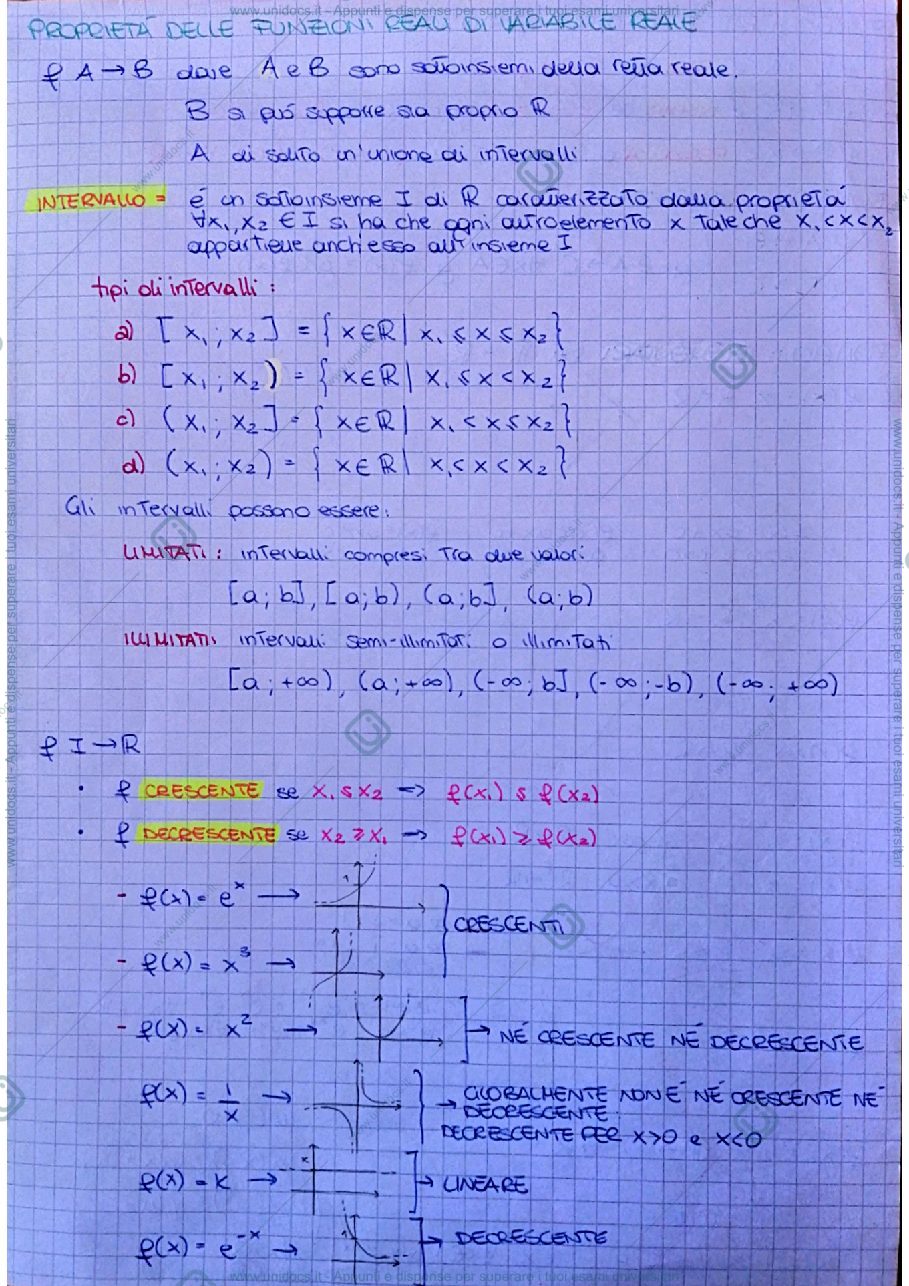 www.unidocs.it - Appunti e dispense per superare i tuoi esami universitari
PROPRIETÀ DELLE FUNZIONI REALI DI VARIABILE REALE
f A → B dove A e B sono sottoinsiemi della retta reale.
B si può supporre sia proprio ℝ
A di solito un'unione di intervalli
INTERVALLO = è un sottoinsieme I di ℝ caratterizzato dalla proprietà
∀x₁, x₂ ∈ I si ha che ogni altro elemento x tale che x₁ < x < x₂
appartiene anch'esso all'insieme I
tipi di intervalli :
a) [x₁ ; x₂] = { x ∈ ℝ | x₁ ≤ x ≤ x₂ }
b) [x₁ ; x₂) = { x ∈ ℝ | x₁ ≤ x < x₂ }
c) (x₁ ; x₂] = { x ∈ ℝ | x₁ < x ≤ x₂ }
d) (x₁ ; x₂) = { x ∈ ℝ | x₁ < x < x₂ }
Gli intervalli possono essere:
LIMITATI : intervalli compresi tra due valori
[a ; b], [a ; b), (a ; b], (a ; b)
ILLIMITATI: intervalli semi-illimitati o illimitati
[a ; +∞), (a ; +∞), (-∞ ; b], (-∞ ; -b), (-∞ ; +∞)
f I → ℝ
• f CRESCENTE se x₁ ≤ x₂ => f(x₁) ≤ f(x₂)
• f DECRESCENTE se x₂ ≥ x₁ => f(x₁) ≥ f(x₂)
- f(x) = eˣ → 1
CRESCENTI
- f(x) = x³ →
- f(x) = x² → → NÉ CRESCENTE NÉ DECRESCENTE
f(x) = 1/x → → GLOBALMENTE NON È NÉ CRESCENTE NÉ
DECRESCENTE.
DECRESCENTE PER x>0 e x<0
f(x) = K → K → LINEARE
f(x) = e⁻ˣ → 1 → DECRESCENTE
www.unidocs.it - Appunti e dispense per superare i tuoi esami universitari